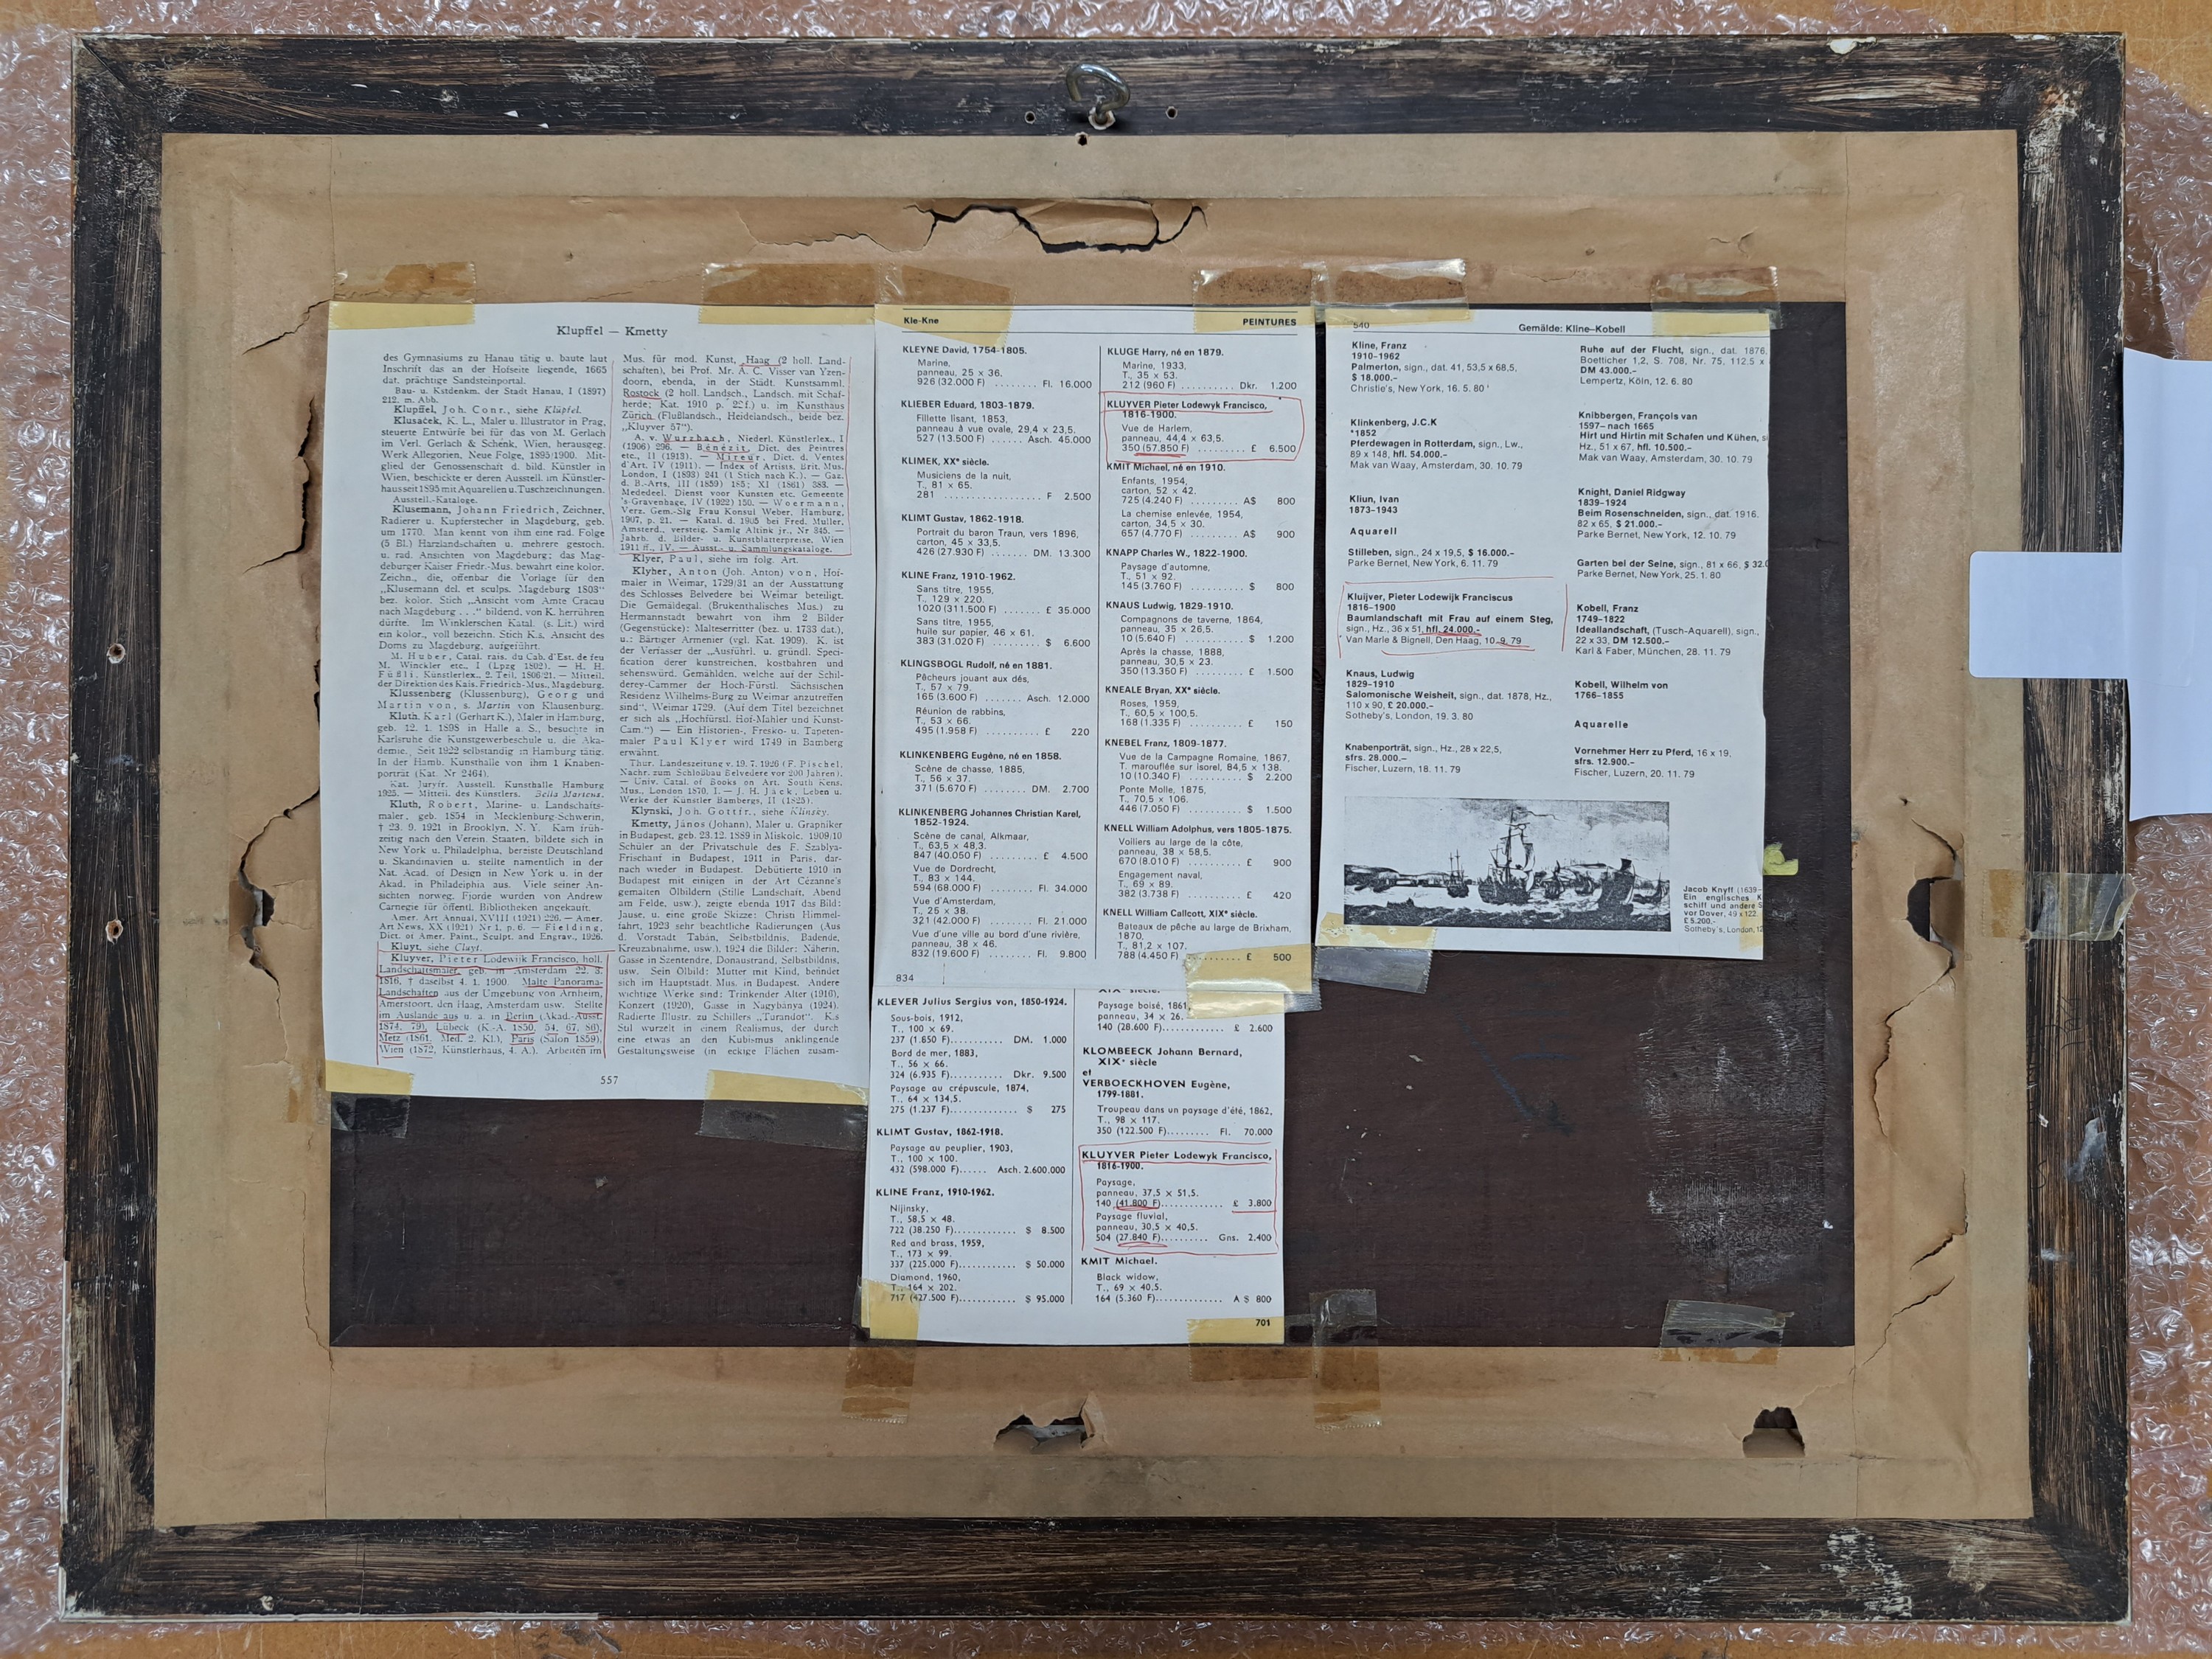 Klupffel — Kmetty
des Gymnasiums zu Hanau tätig u. baute laut
Inschrift das an der Hofseite liegende, 1665
dat. prächtige Sandsteinportal.
Bau- u. Kstdenkm. der Stadt Hanau, I (1897)
212. m. Abb.
Klupffel, Joh. Conr., siehe Klüpfel.
Klusaček, K. L., Maler u. Illustrator in Prag,
steuerte Entwürfe bei für das von M. Gerlach
im Verl. Gerlach & Schenk, Wien, herausgeg.
Werk Allegorien, Neue Folge, 1895/1900. Mit-
glied der Genossenschaft d. bild. Künstler in
Wien, beschickte er deren Ausstell. im Künstler-
haus seit 1895 mit Aquarellen u. Tuschzeichnungen.
Ausstell.-Kataloge.
Klusemann, Johann Friedrich, Zeichner,
Radierer u. Kupferstecher in Magdeburg, geb.
um 1770. Man kennt von ihm eine rad. Folge
(5 Bl.) Harzlandschaften u. mehrere gestoch.
u. rad. Ansichten von Magdeburg; das Mag-
deburger Kaiser Friedr.-Mus. bewahrt eine kolor.
Zeichn., die, offenbar die Vorlage für den
„Klusemann del. et sculps. Magdeburg 1803"
bez. kolor. Stich „Ansicht vom Amte Cracau
nach Magdeburg . . ." bildend, von K. herrühren
dürfte. Im Winklerschen Katal. (s. Lit.) wird
ein kolor., voll bezeichn. Stich K.s, Ansicht des
Doms zu Magdeburg, aufgeführt.
M. Huber, Catal. rais. du Cab. d'Est. de feu
M. Winckler etc., I (Lpzg 1802). — H. H.
Füßli, Künstlerlex., 2. Teil, 1806/21. — Mitteil.
der Direktion des Kais. Friedrich-Mus., Magdeburg.
Klussenberg (Klussenburg), Georg und
Martin von, s. Martin von Klausenburg.
Kluth, Karl (Gerhart K.), Maler in Hamburg,
geb. 12. 1. 1898 in Halle a. S., besuchte in
Karlsruhe die Kunstgewerbeschule u. die Aka-
demie. Seit 1922 selbständig in Hamburg tätig.
In der Hamb. Kunsthalle von ihm 1 Knaben-
porträt (Kat. Nr 2464).
Kat. Juryfr. Ausstell. Kunsthalle Hamburg
1925. — Mitteil. des Künstlers. Bella Martens.
Kluth, Robert, Marine- u. Landschafts-
maler, geb. 1854 in Mecklenburg-Schwerin,
† 23. 9. 1921 in Brooklyn, N. Y. Kam früh-
zeitig nach den Verein. Staaten, bildete sich in
New York u. Philadelphia, bereiste Deutschland
u. Skandinavien u. stellte namentlich in der
Nat. Acad. of Design in New York u. in der
Akad. in Philadelphia aus. Viele seiner An-
sichten norweg. Fjorde wurden von Andrew
Carnegie für öffentl. Bibliotheken angekauft.
Amer. Art Annual, XVIII (1921) 226. — Amer.
Art News, XX (1921) Nr 1, p. 6. — Fielding,
Dict. of Amer. Paint., Sculpt. and Engrav., 1926.
Kluyt, siehe Cluyt.
Kluyver, Pieter Lodewijk Francisco, holl.
Landschaftsmaler, geb. in Amsterdam 22. 3.
1816, † daselbst 4. 1. 1900. Malte Panorama-
Landschaften aus der Umgebung von Arnheim,
Amersfoort, den Haag, Amsterdam usw. Stellte
im Auslande aus u. a. in Berlin (Akad.-Ausst.
1874, 79), Lübeck (K.-A. 1850, 54, 67, 86),
Metz (1861, Med. 2. Kl.), Paris (Salon 1859),
Wien (1872, Künstlerhaus, 4. A.). Arbeiten im
Mus. für mod. Kunst, Haag (2 holl. Land-
schaften), bei Prof. Mr. A. C. Visser van Yzen-
doorn, ebenda, in der Städt. Kunstsamml.
Rostock (2 holl. Landsch., Landsch. mit Schaf-
herde; Kat. 1910 p. 22f.) u. im Kunsthaus
Zürich (Flußlandsch., Heidelandsch., beide bez.
„Kluyver 57").
A. v. Wurzbach, Niederl. Künstlerlex., I
(1906) 296. — Bénézit, Dict. des Peintres
etc., II (1913). — Mireur, Dict. d. Ventes
d'Art, IV (1911). — Index of Artists, Brit. Mus.
London, I (1893) 241 (1 Stich nach K.). — Gaz.
d. B.-Arts, III (1859) 185; XI (1861) 383. —
Mededeel. Dienst voor Kunsten etc. Gemeente
's-Gravenhage, IV (1922) 150. — Woermann,
Verz. Gem.-Slg Frau Konsul Weber, Hamburg,
1907, p. 21. — Katal. d. 1905 bei Fred. Muller,
Amsterd., versteig. Samlg Altink jr., Nr 345. —
Jahrb. d. Bilder- u. Kunstblätterpreise, Wien
1911 ff., IV. — Ausst.- u. Sammlungskataloge.
Klyer, Paul, siehe im folg. Art.
Klyher, Anton (Joh. Anton) von, Hof-
maler in Weimar, 1729/31 an der Ausstattung
des Schlosses Belvedere bei Weimar beteiligt.
Die Gemäldegal. (Brukenthalisches Mus.) zu
Hermannstadt bewahrt von ihm 2 Bilder
(Gegenstücke): Malteserritter (bez. u. 1733 dat.),
u.: Bärtiger Armenier (vgl. Kat. 1909). K. ist
der Verfasser der „Ausführl. u. gründl. Speci-
fication derer kunstreichen, kostbahren und
sehenswürd. Gemählden, welche auf der Schil-
derey-Cammer der Hoch-Fürstl. Sächsischen
Residenz Wilhelms-Burg zu Weimar anzutreffen
sind", Weimar 1729. (Auf dem Titel bezeichnet
er sich als „Hochfürstl. Hof-Mahler und Kunst-
Cam.") — Ein Historien-, Fresko- u. Tapeten-
maler Paul Klyer wird 1749 in Bamberg
erwähnt.
Thür. Landeszeitung v. 19. 7. 1926 (F. Pischel,
Nachr. zum Schloßbau Belvedere vor 200 Jahren).
— Univ. Catal. of Books on Art, South Kens.
Mus., London 1870, I. — J. H. Jäck, Leben u.
Werke der Künstler Bambergs, II (1825).
Klynski, Joh. Gottfr., siehe Klinsky.
Kmetty, János (Johann), Maler u. Graphiker
in Budapest, geb. 23. 12. 1889 in Miskolc. 1909/10
Schüler an der Privatschule des F. Szablya-
Frischauf in Budapest, 1911 in Paris, dar-
nach wieder in Budapest. Debütierte 1910 in
Budapest mit einigen in der Art Cézanne's
gemalten Ölbildern (Stille Landschaft, Abend
am Felde, usw.), zeigte ebenda 1917 das Bild:
Jause, u. eine große Skizze: Christi Himmel-
fahrt, 1923 sehr beachtliche Radierungen (Aus
d. Vorstadt Tabán, Selbstbildnis, Badende,
Kreuzabnahme, usw.), 1924 die Bilder: Näherin,
Gasse in Szentendre, Donaustrand, Selbstbildnis,
usw. Sein Ölbild: Mutter mit Kind, befindet
sich im Hauptstadt. Mus. in Budapest. Andere
wichtige Werke sind: Trinkender Alter (1916),
Konzert (1920), Gasse in Nagybánya (1924).
Radierte Illustr. zu Schillers „Turandot". K.s
Stil wurzelt in einem Realismus, der durch
eine etwas an den Kubismus anklingende
Gestaltungsweise (in eckige Flächen zusam-
557
Kle-Kne PEINTURES
KLEYNE David, 1754-1805.
Marine,
panneau, 25 x 36.
926 (32.000 F) ........ Fl. 16.000
KLIEBER Eduard, 1803-1879.
Fillette lisant, 1853,
panneau à vue ovale, 29,4 x 23,5.
527 (13.500 F) ...... Asch. 45.000
KLIMEK, XXe siècle.
Musiciens de la nuit,
T., 81 x 65.
281 ................. F 2.500
KLIMT Gustav, 1862-1918.
Portrait du baron Traun, vers 1896,
carton, 45 x 33,5.
426 (27.930 F) ...... DM. 13.300
KLINE Franz, 1910-1962.
Sans titre, 1955,
T., 129 x 220.
1020 (311.500 F) ....... £ 35.000
Sans titre, 1955,
huile sur papier, 46 x 61.
383 (31.020 F) ......... $ 6.600
KLINGSBOGL Rudolf, né en 1881.
Pêcheurs jouant aux dés,
T., 57 x 79.
165 (3.600 F) ....... Asch. 12.000
Réunion de rabbins,
T., 53 x 66.
495 (1.958 F) .......... £ 220
KLINKENBERG Eugène, né en 1858.
Scène de chasse, 1885,
T., 56 x 37.
371 (5.670 F) ........ DM. 2.700
KLINKENBERG Johannes Christian Karel,
1852-1924.
Scène de canal, Alkmaar,
T., 63,5 x 48,3.
847 (40.050 F) ......... £ 4.500
Vue de Dordrecht,
T., 83 x 144.
594 (68.000 F) ........ Fl. 34.000
Vue d'Amsterdam,
T., 25 x 38.
321 (42.000 F) ........ Fl. 21.000
Vue d'une ville au bord d'une rivière,
panneau, 38 x 46.
832 (19.600 F) ........ Fl. 9.800
834
KLUGE Harry, né en 1879.
Marine, 1933,
T., 35 x 53.
212 (960 F) .......... Dkr. 1.200
KLUYVER Pieter Lodewyk Francisco,
1816-1900.
Vue de Harlem,
panneau, 44,4 x 63,5.
350 (57.850 F) ......... £ 6.500
KMIT Michael, né en 1910.
Enfants, 1954,
carton, 52 x 42.
725 (4.240 F) ......... A$ 800
La chemise enlevée, 1954,
carton, 34,5 x 30.
657 (4.770 F) ......... A$ 900
KNAPP Charles W., 1822-1900.
Paysage d'automne,
T., 51 x 92.
145 (3.760 F) .......... $ 800
KNAUS Ludwig, 1829-1910.
Compagnons de taverne, 1864,
panneau, 35 x 26,5.
10 (5.640 F) ........... $ 1.200
Après la chasse, 1888,
panneau, 30,5 x 23.
350 (13.350 F) ......... £ 1.500
KNEALE Bryan, XXe siècle.
Roses, 1959,
T., 60,5 x 100,5.
168 (1.335 F) .......... £ 150
KNEBEL Franz, 1809-1877.
Vue de la Campagne Romaine, 1867,
T. marouflée sur isorel, 84,5 x 138.
10 (10.340 F) .......... $ 2.200
Ponte Molle, 1875,
T., 70,5 x 106.
446 (7.050 F) .......... $ 1.500
KNELL William Adolphus, vers 1805-1875.
Voiliers au large de la côte,
panneau, 38 x 58,5.
670 (8.010 F) .......... £ 900
Engagement naval,
T., 69 x 89.
382 (3.738 F) .......... £ 420
KNELL William Callcott, XIXe siècle.
Bateaux de pêche au large de Brixham,
1870,
T., 81,2 x 107.
788 (4.450 F) .......... £ 500
KLEVER Julius Sergius von, 1850-1924.
Sous-bois, 1912,
T., 100 x 69.
237 (1.650 F).......... DM. 1.000
Bord de mer, 1883,
T., 56 x 66.
324 (6.935 F).......... Dkr. 9.500
Paysage au crépuscule, 1874,
T., 64 x 134,5.
275 (1.237 F)............. $ 275
KLIMT Gustav, 1862-1918.
Paysage au peuplier, 1903,
T., 100 x 100.
432 (598.000 F)...... Asch. 2.600.000
KLINE Franz, 1910-1962.
Nijinsky,
T., 58,5 x 48.
722 (38.250 F)............ $ 8.500
Red and brass, 1959,
T., 173 x 99.
337 (225.000 F)........... $ 50.000
Diamond, 1960,
T., 164 x 202.
717 (427.500 F)........... $ 95.000
XIXe siècle.
Paysage boisé, 1861,
panneau, 34 x 26.
140 (28.600 F)............ £ 2.600
KLOMBEECK Johann Bernard,
XIXe siècle
et
VERBOECKHOVEN Eugène,
1799-1881.
Troupeau dans un paysage d'été, 1862,
T., 98 x 117.
350 (122.500 F)........ Fl. 70.000
KLUYVER Pieter Lodewyk Francisco,
1816-1900.
Paysage,
panneau, 37,5 x 51,5.
140 (41.800 F)............ £ 3.800
Paysage fluvial,
panneau, 30,5 x 40,5.
504 (27.840 F)......... Gns. 2.400
KMIT Michael.
Black widow,
T., 69 x 40,5.
164 (5.360 F)............. A $ 800
701
540 Gemälde: Kline–Kobell
Kline, Franz
1910-1962
Palmerton, sign., dat. 41, 53,5 x 68,5,
$ 18.000.-
Christie's, New York, 16. 5. 80
Klinkenberg, J.C.K
*1852
Pferdewagen in Rotterdam, sign., Lw.,
89 x 148, hfl. 54.000.-
Mak van Waay, Amsterdam, 30. 10. 79
Kliun, Ivan
1873-1943
Aquarell
Stilleben, sign., 24 x 19,5, $ 16.000.-
Parke Bernet, New York, 6. 11. 79
Kluijver, Pieter Lodewijk Franciscus
1816-1900
Baumlandschaft mit Frau auf einem Steg,
sign., Hz., 36 x 51, hfl. 24.000.-
Van Marle & Bignell, Den Haag, 10. 9. 79
Knaus, Ludwig
1829-1910
Salomonische Weisheit, sign., dat. 1878, Hz.,
110 x 90, £ 20.000.-
Sotheby's, London, 19. 3. 80
Knabenporträt, sign., Hz., 28 x 22,5,
sfrs. 28.000.-
Fischer, Luzern, 18. 11. 79
Ruhe auf der Flucht, sign., dat. 1876,
Boetticher 1,2, S. 708, Nr. 75, 112.5 x
DM 43.000.-
Lempertz, Köln, 12. 6. 80
Knibbergen, François van
1597- nach 1665
Hirt und Hirtin mit Schafen und Kühen,
Hz., 51 x 67, hfl. 10.500.-
Mak van Waay, Amsterdam, 30. 10. 79
Knight, Daniel Ridgway
1839-1924
Beim Rosenschneiden, sign., dat. 1916.
82 x 65, $ 21.000.-
Parke Bernet, New York, 12. 10. 79
Garten bei der Seine, sign., 81 x 66, $ 32.0
Parke Bernet, New York, 25. 1. 80
Kobell, Franz
1749-1822
Ideallandschaft, (Tusch-Aquarell), sign.,
22 x 33, DM 12.500.-
Karl & Faber, München, 28. 11. 79
Kobell, Wilhelm von
1766-1855
Aquarelle
Vornehmer Herr zu Pferd, 16 x 19,
sfrs. 12.900.-
Fischer, Luzern, 20. 11. 79
Jacob Knyff (1639-
Ein englisches K
schiff und andere S
vor Dover, 49 x 122
£ 5.200.-
Sotheby's, London, 12